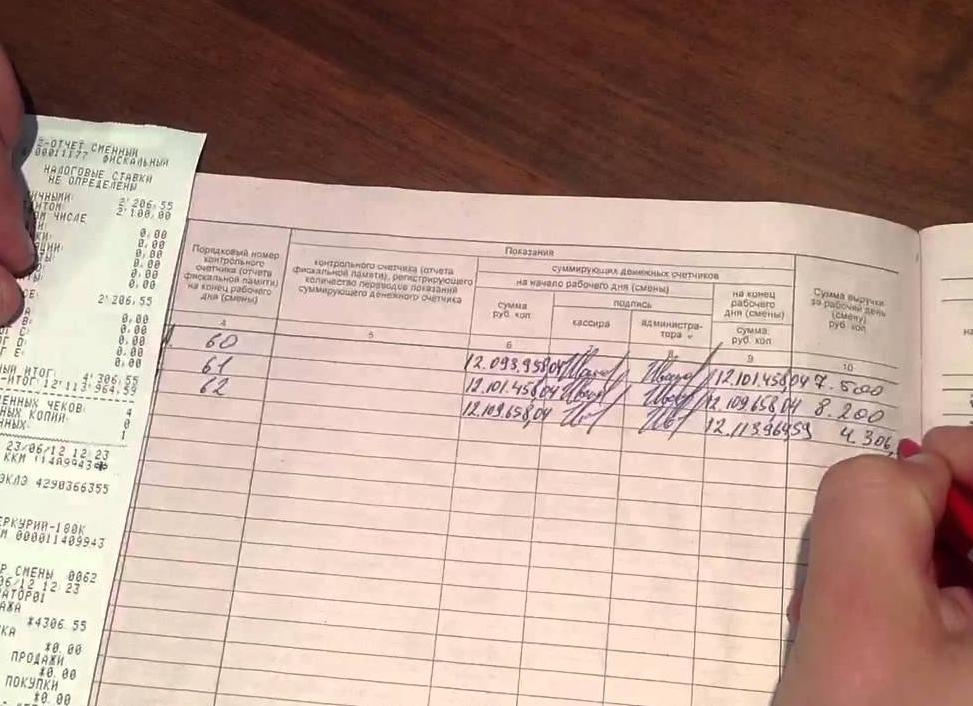 Z-ОТЧЕТ СМЕННЫЙ
00011177 ФИСКАЛЬНЫЙ
НАЛОГОВЫЕ СТАВКИ
НЕ ОПРЕДЕЛЕНЫ
2'206.55
2'100.00
ЧИСЛЕ
0.00
0.00
0.00
0.00
0.00
0.00
2'206.55
0.00
0.00
0.00
0.00
0.00
ИТОГ: 4'306.55
-ИТОГ: 12'113'964.59
ЧЕКОВ: 4
КОПИЙ: 0
1
23/06/12 12 23
ККМ 11409943
ЭКЛЗ 4290366355
МЕРКУРИЙ-180К
000011409943
СМЕНЫ 0062
06/12 12 23
*4306.55
*0.00
ПРОДАЖИ
*0.00
ПОКУПКИ
*0.00
Показания
Порядковый номер контрольного счетчика (отчета фискальной памяти) на конец рабочего дня (смены)
контрольного счетчика (отчета фискальной памяти), регистрирующего количество переводов показаний суммирующего денежного счетчика
суммирующих денежных счетчиков
на начало рабочего дня (смены)
сумма руб. коп
подпись
кассира
администратора
на конец рабочего дня (смены)
сумма руб. коп
Сумма выручки за рабочий день (смену) руб. коп
4 5 6 7 8 9 10
60 12.093.958,04 12.101.458,04 7.500
61 12.101.458,04 12.109.658,04 8.200
62 12.109.658,04 12.113.964,59 4.306,